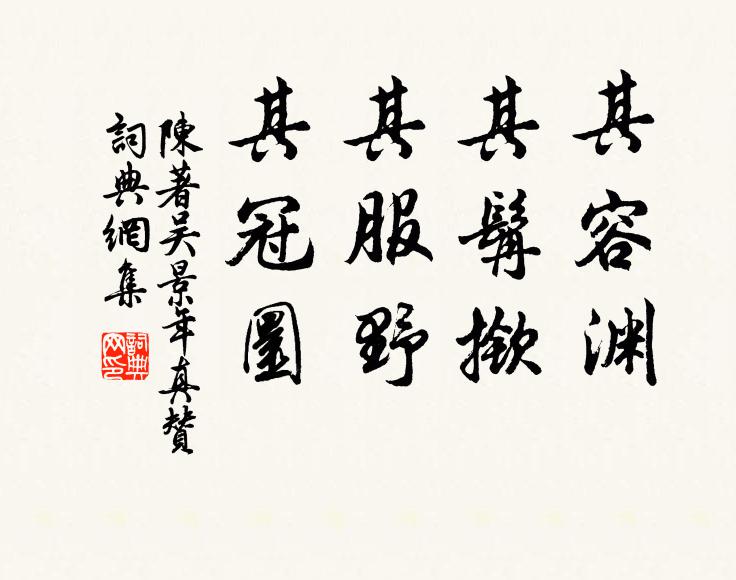 其容渊
其
其服野
其冠圜
陳著吴景年真贊
詞典網集
詞典网印